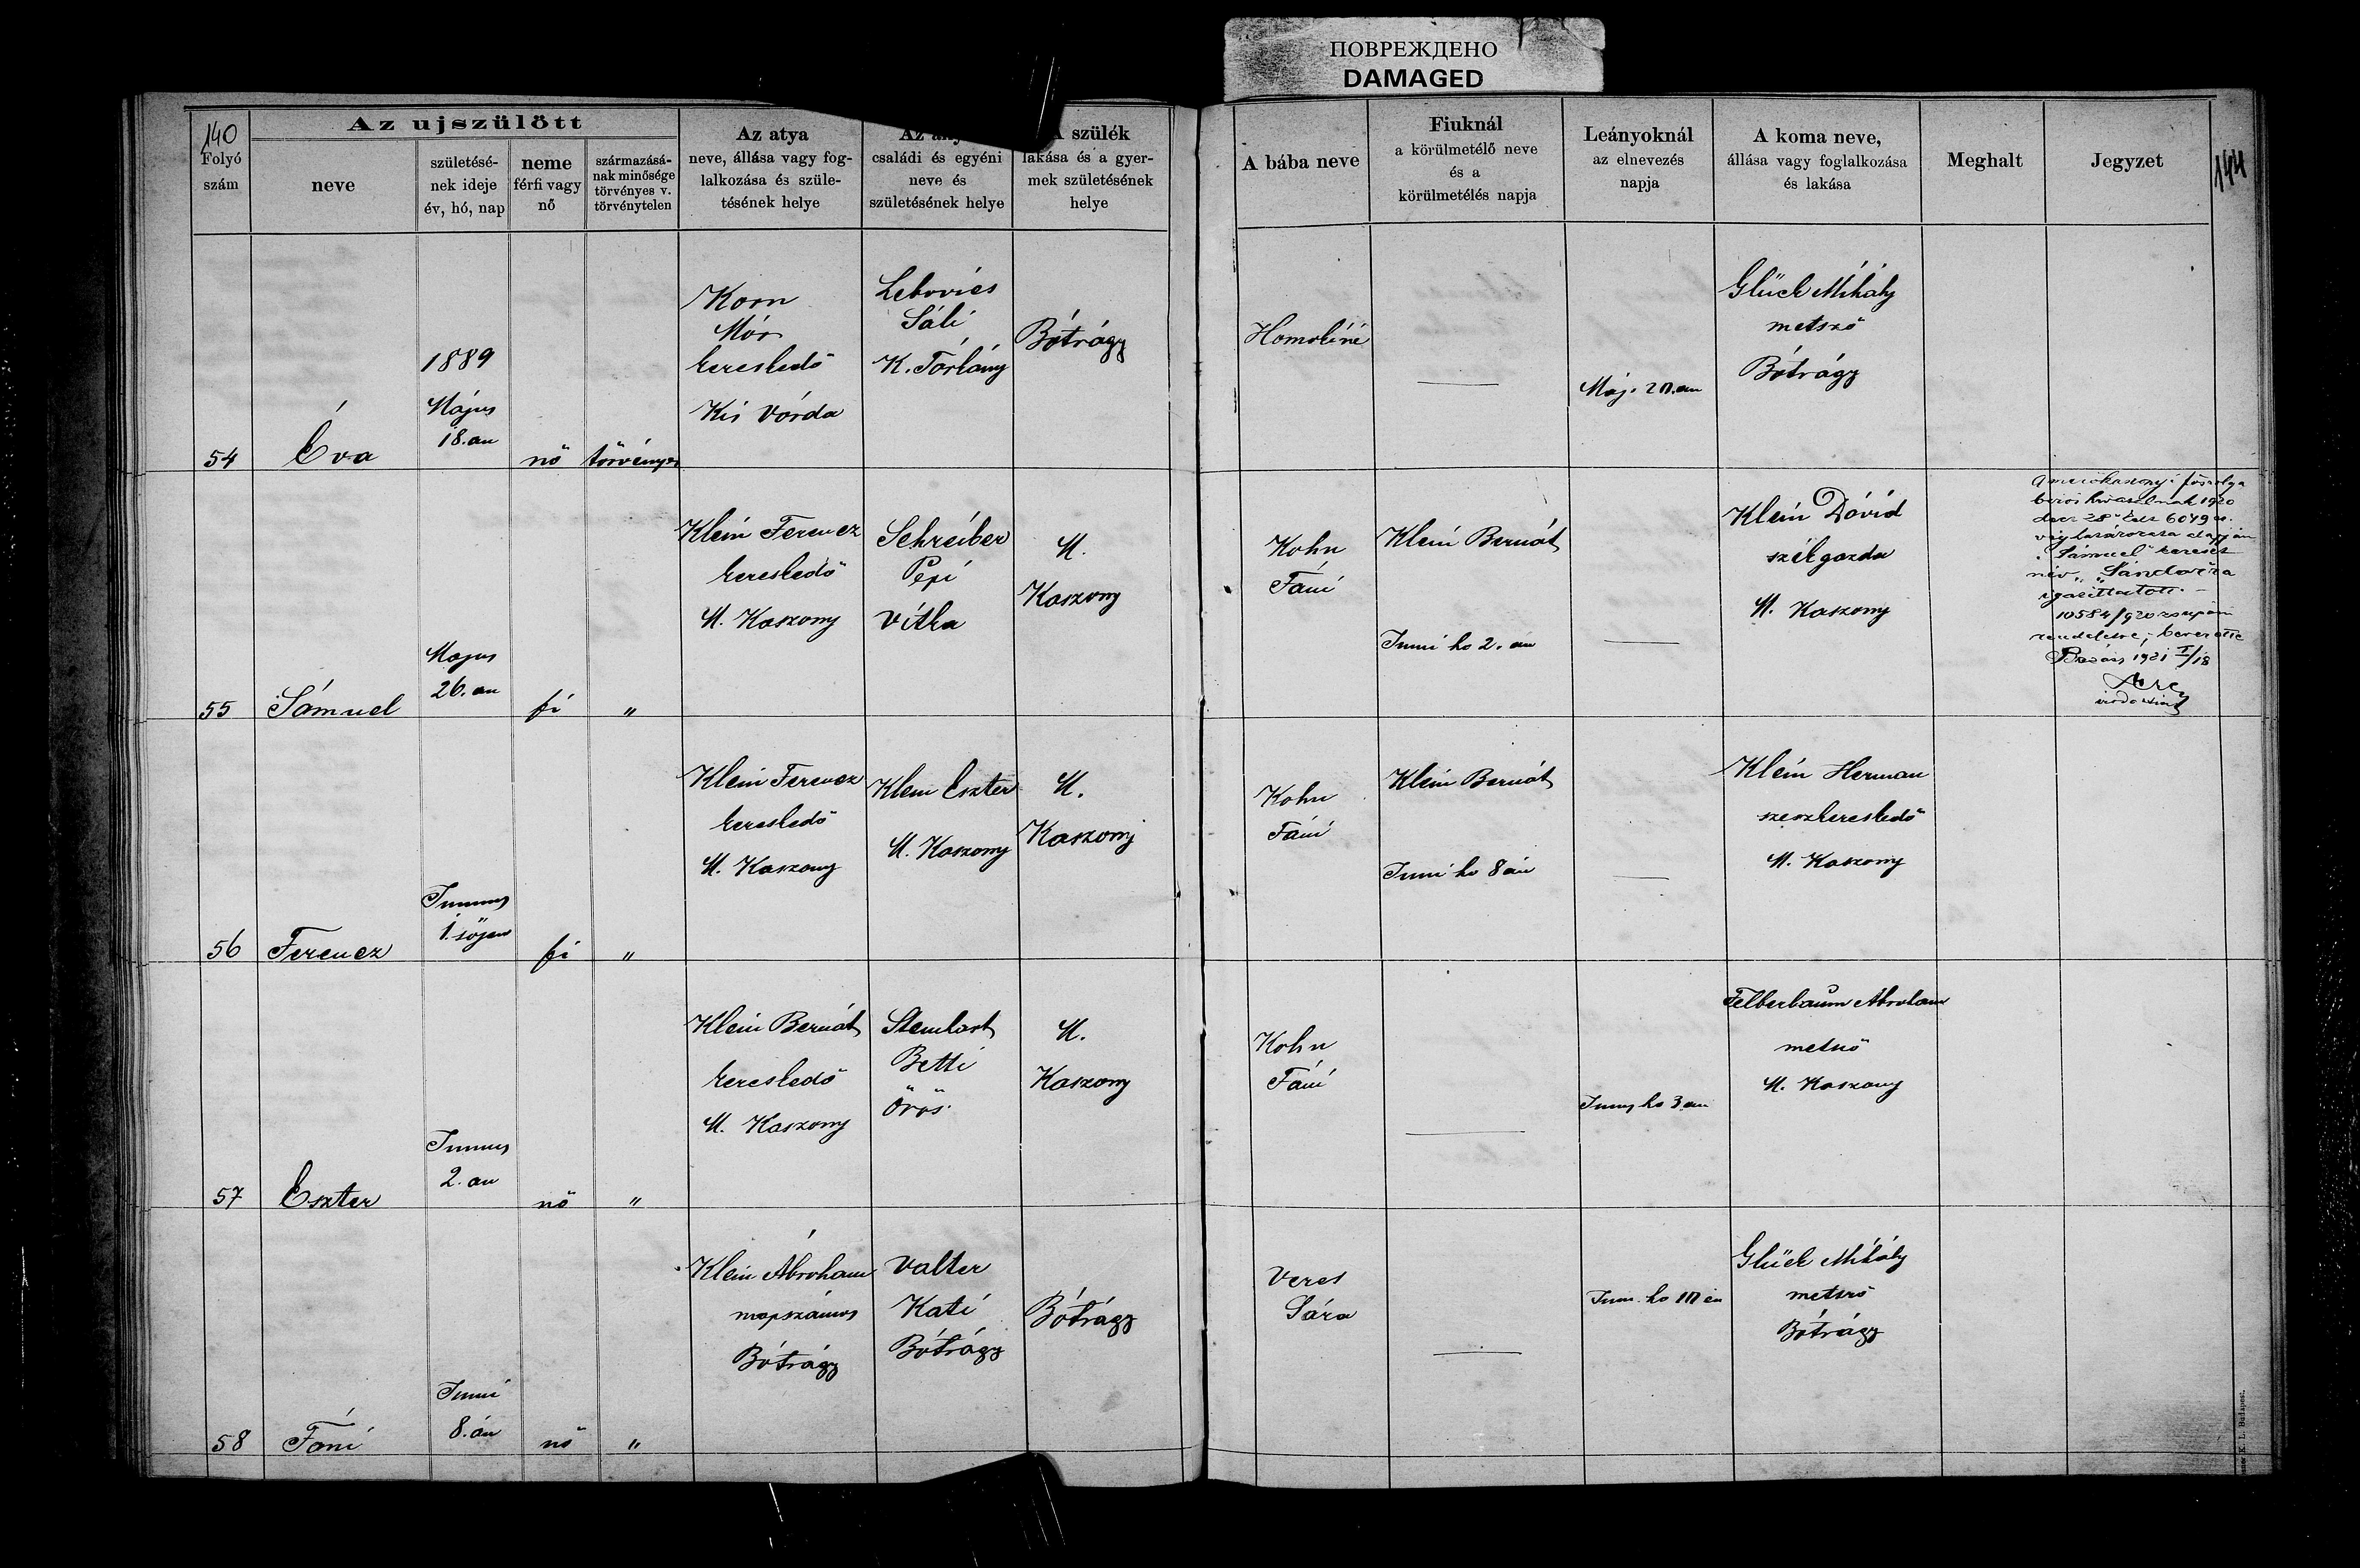 ПОВРЕЖДЕНО
DAMAGED
140
Folyó
szám
Az ujszülött
neve
születésé-
nek ideje
év, hó, nap
neme
férfi vagy
nő
származásá-
nak minősége
törvényes v.
törvénytelen
Az atya
neve, állása vagy fog-
lalkozása és szüle-
tésének helye
Az
családi és egyéni
neve és
születésének helye
A szülék
lakása és a gyer-
mek születésének
helye
A bába neve
Fiuknál
a körülmetélő neve
és a
körülmetélés napja
Leányoknál
az elnevezés
napja
A koma neve,
állása vagy foglalkozása
és lakása
Meghalt
Jegyzet
144
54
Éva
1889
Május
18.an
nő
törvényes
Korn
Mór
kereskedő
Kis Várda
Lebovics
Sáli
K. Tárkány
Bótrágy
Homokiné
Máj. 20.an
Glück Mihály
metsző
Bótrágy
55
Sámuel
Majus
26. an
fi
"
Klein Ferencz
kereskedő
M. Kaszony
Schreiber
Pepi
Vitka
M.
Kaszony
Kohn
Fáni
Klein Bernát
Juni ho 2. án
Klein Dávid
szélgazda
M. Kaszony
A mezőkaszonyi főszolga
birói hivatalnak 1920
dec 28 kelt 6049 sz.
véghatározata alapján
"Sámuel" kereszt
név "Sándor"ra
igazittatott. -
10584/920 zsupáni
rendeletre; bevezette
1921 I/18
56
Ferencz
Junius
1. sőjen
fi
"
Klein Ferencz
kereskedő
M. Kaszony
Klein Eszter
M. Kaszony
M.
Kaszony
Kohn
Fáni
Klein Bernát
Juni ho 8 án
Klein Herman
szeszkereskedő
M. Kaszony
57
Eszter
Junius
2. an
nő
"
Klein Bernát
kereskedő
M. Kaszony
Betti
Örös.
M.
Kaszony
Kohn
Fáni
Junius ho 3 an
Felberbaum Abraham
metsző
M. Kaszony
58
Fáni
Juni
8. án
nő
"
Klein Ábraham
napszámos
Bótrágy
Valter
Kati
Bótrágy
Bótrágy
Veres
Sára
Juni ho 10 én
Glück Mihály
metsző
Bótrágy
K. L. Budapest.